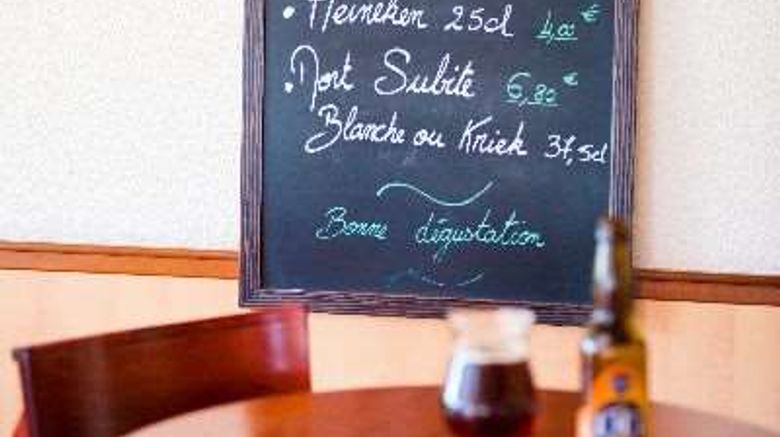 • Heineken 25cl 4,00 €
• Mort Subite 6,80 €
Blanche ou Kriek 37,5cl
Bonne dégustation